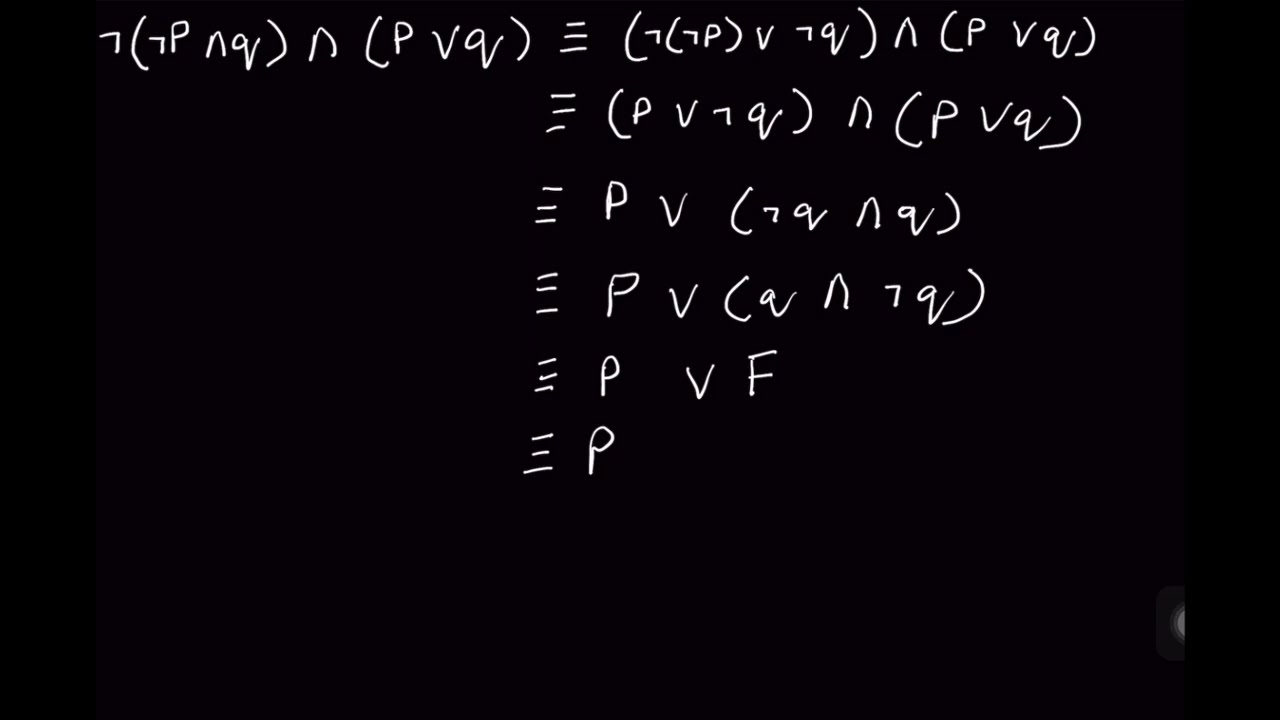 ¬(¬P ∧ q) ∧ (P ∨ q) ≡ (¬(¬P) ∨ ¬q) ∧ (P ∨ q)
≡ (P ∨ ¬q) ∧ (P ∨ q)
≡ P ∨ (¬q ∧ q)
≡ P ∨ (q ∧ ¬q)
≡ P ∨ F
≡ P